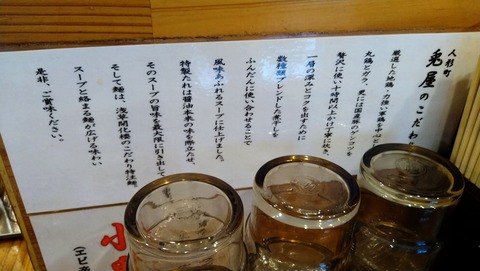 人形町
兎屋のこだわり
厳選した地鶏・力強い軍鶏を中心と
丸鶏とガラ、更には国産豚のゲンコツを
贅沢に使い十時間以上かけ丁寧に炊き、
一層の深みとコクを出すために
数種類ブレンドした煮干しを
ふんだんに使い合わせることで
風味あふれるスープに仕上げました。
特製だれは醤油本来の味を際立たせ、
そのスープの旨味を最大限に引き出して
そして麺は、浅草開化楼のこだわり特注麺。
スープと絡まる麺が広げる味わい、
是非、ご賞味ください。
(エビ